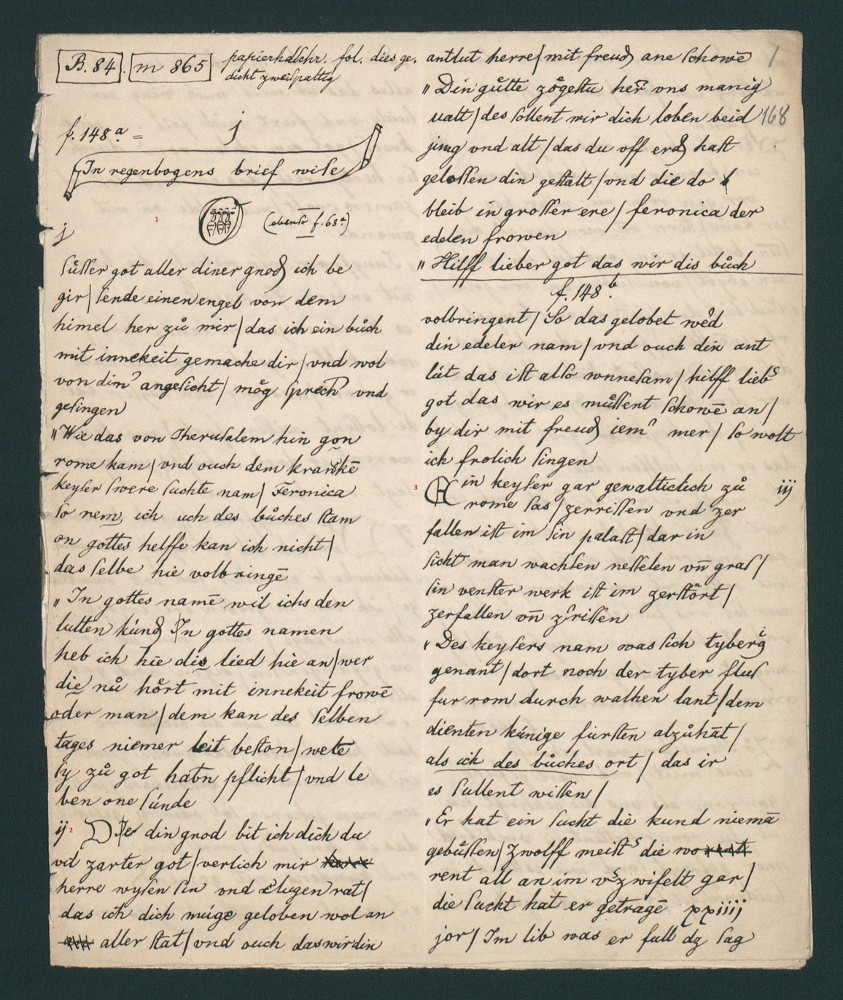 B. 84. m 865 papierhdschr. fol. dies ge.
dicht zweispaltig
f. 148ª =
j
In regenbogens brief wise
(ebenso f. 63ª)
j
süsser got aller diner gnod ich be
gir / sende einen engel von dem
himel her zů mir / das ich ein bůch
mit innekeit gemache dir / vnd wol
von dim angesicht / mög sprech vnd
gesingen
"Wie das von Jherusalem hin gon
rome kam / vnd ouch dem krancke
keyser swere suchte nam / Feronica
so nem ich uch des bůches stam
on gottes helffe kan ich nicht /
das selbe hie volbringē
"In gottes namē wil ichs den
lutten kúnd In gottes namen
heb ich hie dis lied hie an / wer
die nů hört mit innekeit frowē
oder man / dem kan des selben
tages niemer leit beston / wete
sy zů got habn pflicht / vnd le
ben one súnde
ij Dir din gnod bit ich dich du
vil zarter got / verlich mir
herre wysen sin vnd clugen rat /
das ich dich múge geloben wol an
aller stat / vnd ouch das wir din
1
168
antlut herre / mit freud ane schowē
"Din gůtte zögestu her vns manig
ualt / des sollent wir dich loben beid
jung vnd alt / das du vff erd hast
gelossen din gestalt / vnd die do
bleib in grosser ere / feronica der
edelen frowen
"Hilff lieber got das wir dis bůch
f. 148 b.
volbringent / So das gelobet werd
din edeler nam / vnd ouch din ant
lút das ist also wunnesam / hilff lieb
got das wir es můssent schowē an /
by dir mit freud iem mer / so wolt
ich frolich singen
Ein keyser gar gewalticlich zů iij
rome sas / zerrissen vnd zer
fallen ist im sin palast / dar in
sicht man wachsen nesselen vn̄ gras /
sin venster werk ist im zerstört /
zerfallen vn̄ zrissen
"Des keysers nam was sich tyberg
genant / dort noch der tyber flus
fur rom durch walhen lant / dem
dienten kúnige fúrsten alzůhāt /
als ich des bůches ort / das ir
es sullent wissen /
"Er hat ein sucht die kund niemā
gebůssen / zwolff meist die wo
rent all an im vzwifelt gar /
die sucht hat er getragē xxiiij
jor / Im lib was er full dz sag